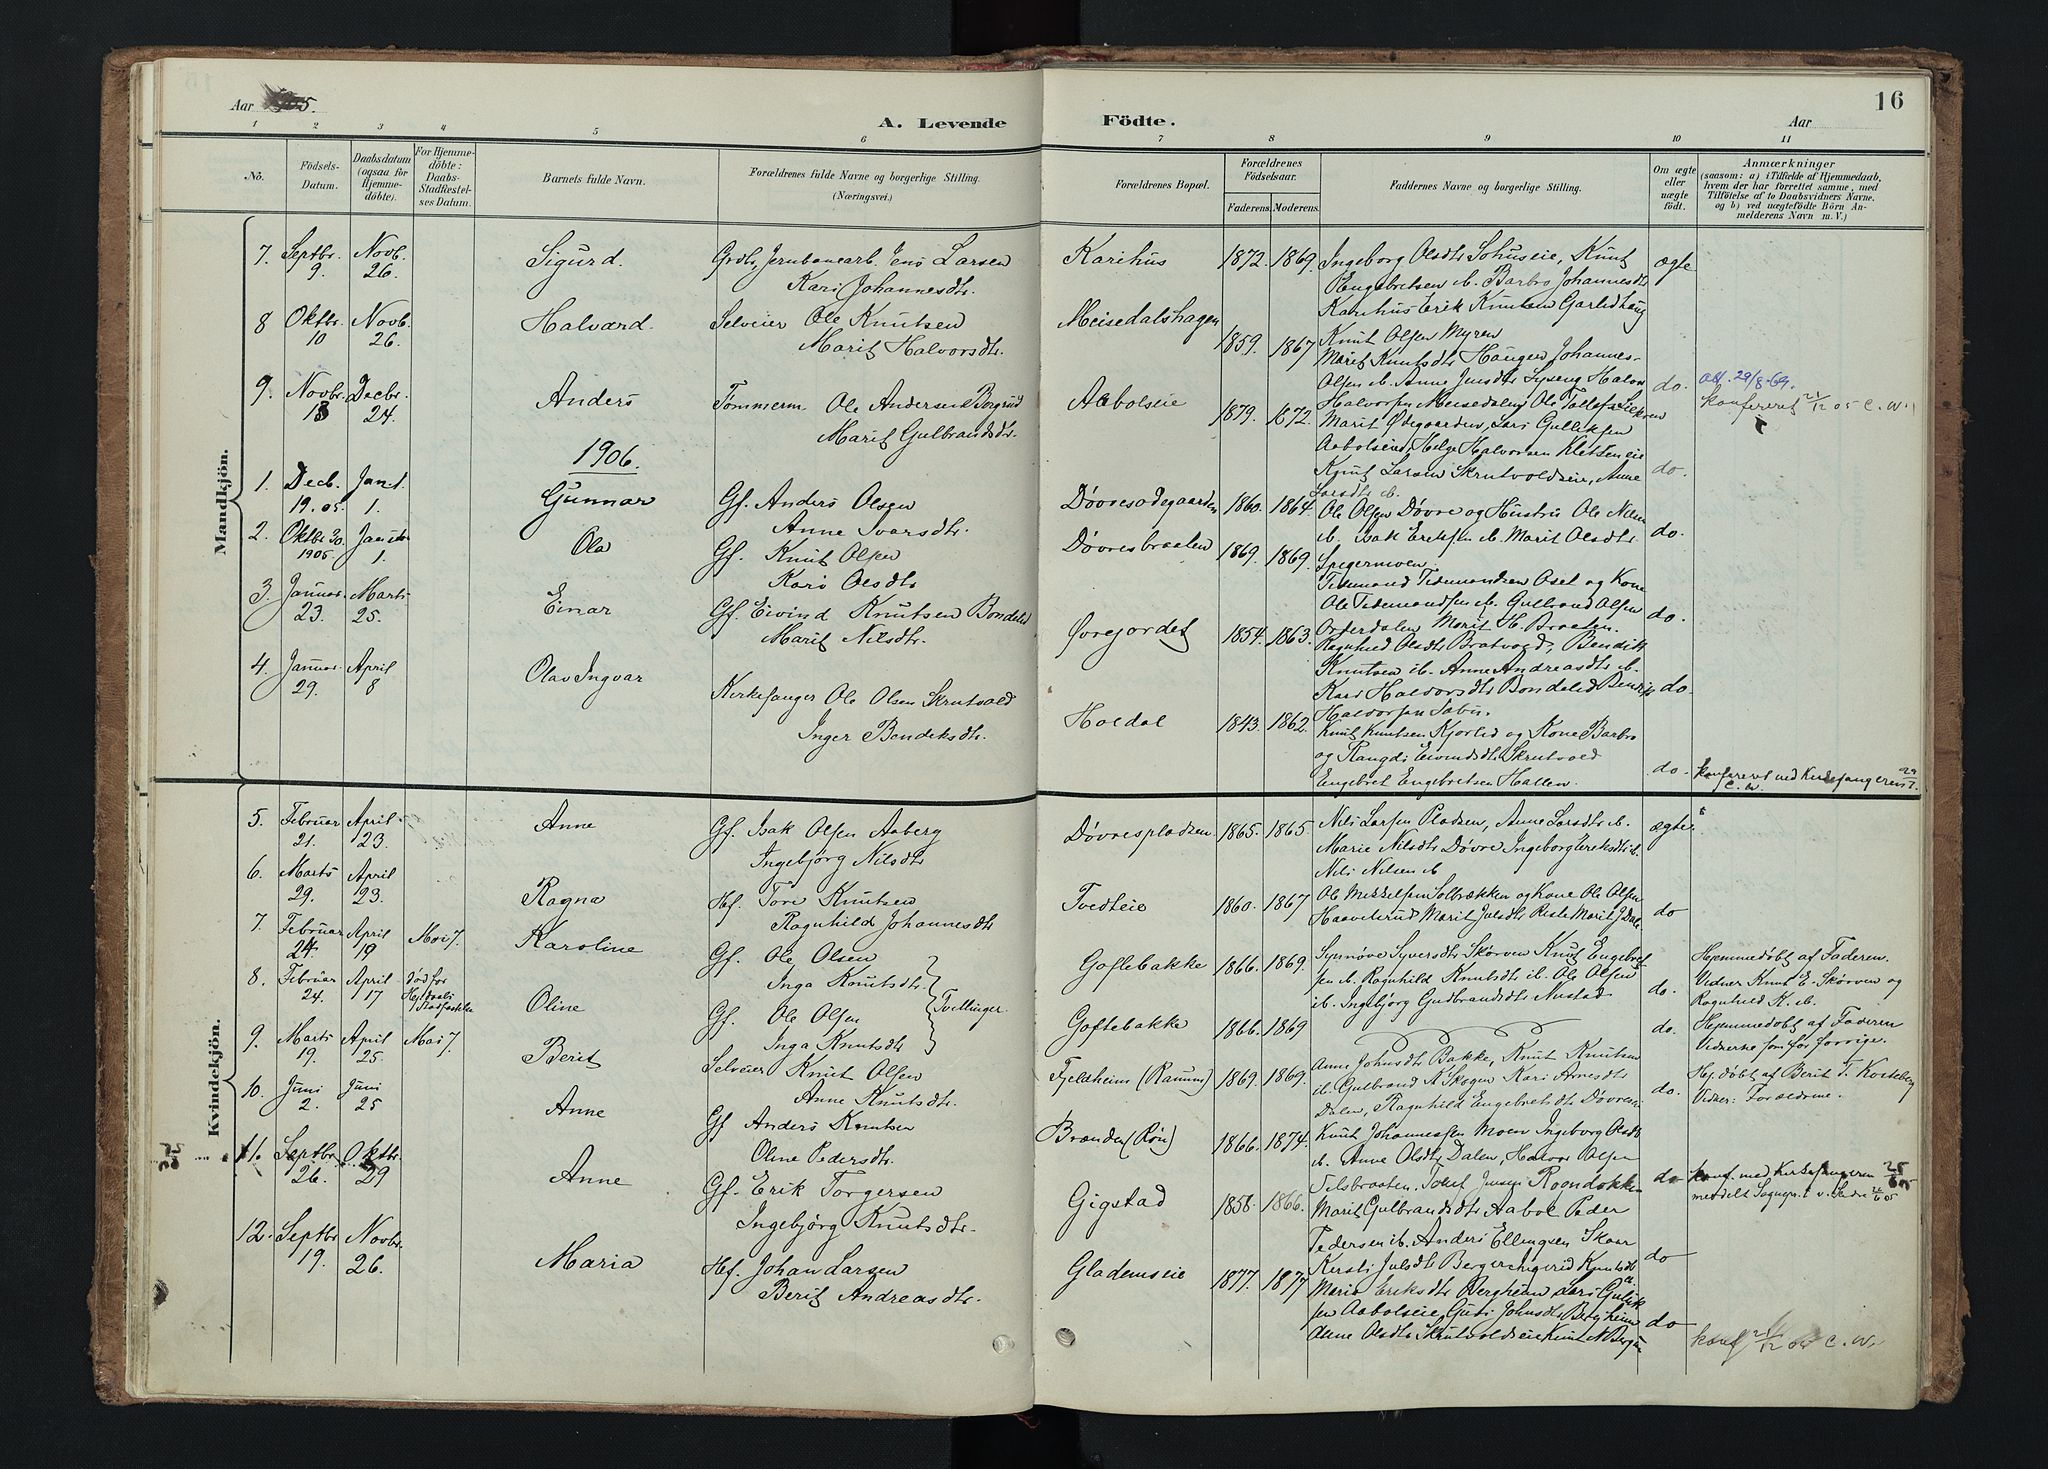 Aar 1905.
A. Levende
Födte.
Aar
16
1 2 3 4 5 6 7 8 9 10 11
Nö.
Födsels-
Datum.
Daabsdatum
(ogsaa för
Hjemme-
döbte).
For Hjemme-
döbte:
Daabs-
Stadfæstel-
ses Datum.
Barnets fulde Navn.
Forældrenes fulde Navne og borgerlige Stilling.
(Næringsvei.)
Forældrenes Bopæl.
Forældrenes
Födselsaar.
Faderens. Moderens.
Faddernes Navne og borgerlige Stilling.
Om ægte
eller
uægte
födt.
Anmærkninger
(saasom: a) i Tilfælde af Hjemmedaab,
hvem der har forrettet samme, med
Tilföielse af to Daabsvidners Navne,
og b) ved uægtefödte Börn An-
melderens Navn m. V.)
Mandkjön.
7. Septbr. 9. Novb. 26. Sigurd.
Grdbr, Jernbanearb. Jens Larsen
Kari Johannesdtr.
Karihus 1872. 1869.
Ingeborg Olsdtr Sohuseie, Knut
Engebretsen ib. Barbro Johannesdtr
Karihus Erik Knutsen Garlidhaug
ægte
8 Oktbr. 10 Novb. 26. Halvard.
Selveier Ole Knutsen
Marit Halvorsdtr.
Meisedalshagen 1859. 1867
Knut Olsen Myren
Marit Knutsdtr Haugen Johannes
Olsen ib. Anne Jensdtr Lyseng Halvor
Halvorsen Meisedalen
do.
9. Novbr. 13 Decbr. 24. Anders
Tømmerm. Ole Andersen Borgrud
Marit Gulbrandsdtr.
Aabolseie 1879. 1872.
Marit Ødegaarden, Lars Gulliksen
Aabolseie, Helge Halvorsen Kletseneie
Knut Larsen Skrutvoldseie, Anne
Larsdtr ib.
do.
29/8-69.
konfereret 21/12 05 C. W.
1906.
1. Decb. 19.05. Jan 1. Gunnar
Gf. Anders Olsen
Anne Ivarsdtr.
Døvresødegaarden 1860. 1864.
Ole Olsen Døvre og Hustru Ole Nilsen
ib. Isak Eriksen ib. Marit Olsdtr
Spegermoen
do.
2. Oktbr 30. 1905. Januar 1. Ola
Gf. Knut Olsen
Kari Olsdtr
Døvresbraaten 1869. 1869.
Tidemand Tidemandsen Oset og Kone
Ole Tidemandsen ib. Gulbrand Olsen
Orderdalen Marit H. Braaten.
do.
3. Januar. 23. Marts 25. Einar
Gf. Eivind Knutsen Bondelid
Marit Nilsdtr.
Øvrejordet 1854. 1863.
Ragnhild Olsdtr Bratvold, Bendik
Knutsen ib. Anne Andreasdtr ib.
Kari Halvorsdtr Bondelid Bendik
Halvorsen
do.
4. Januar. 29. April 8 Olav Ingvar
Kirkesanger Ole Olsen Skrutvold
Inger Bendiksdtr.
Holdal 1843. 1862.
Knut Knutsen Kjørlid og Kone Barbro
og Rangdi Eivindsdtr Skrutvold
Engebret Engebretsen Hallen.
do. konfereret ved Kirkesangeren 29/7.
C. W.
Kvindekjön.
5. Februar 21. April 23. Anne
Gf. Isak Olsen Aaberg
Ingebjørg Nilsdtr
Døvrespladsen. 1865. 1865.
Nils Larsen Pladsen, Anne Larsdtr ib.
Marie Nilsdtr Døvre Ingeborg Eriksdtr ib.
Nils Nilsen ib
ægte
6. Marts 29. April 23. Ragna
Hf. Tore Knutsen
Ragnhild Johannesdtr
Tvedteie 1860. 1867
Ole Mikkelsen Solbrækken og Kone Ole Olsen
Haavelsrud Marit Julsdtr Reste Marit J. Dale
do
7. Februar 24. April 19 Mai 7. Karoline
Gf. Ole Olsen
Inga Knutsdtr.
Goflebakke 1866. 1869.
Synnøve Syversdtr Skørven Knut Engebret-
sen ib. Ragnhild Knutsdtr ib. Ole Olsen
ib. Ingebjørg Gudbrandsdtr Nustad
do.
Hjemmedøbt af Faderen.
Vidner Knut E. Skørven og
Ragnhild K. ib.
8. Februar 24. April 17 død før Hj.daabs Stadfæstelse Oline
Gf. Ole Olsen
Inga Knutsdtr
Tvillinger.
Goflebakke 1866. 1869
do.
Hjemmedøbt af Faderen
Vidnerne som for forrige.
9. Marts 19. April 25 Mai 7. Berit
Selveier Knut Olsen
Anne Knutsdtr.
Fjeldheim (Ranum) 1869. 1869.
Anne Johnsdtr Bakke, Knut Knutsen
ib Gulbrand K Skogen Kari Arnesdtr
Dalen, Ragnhild Engebretsdtr Døvre
do.
Hj.døbt af Berit T. Kolteberg
Vidner: Forældrene.
10. Juni 2. Juni 25 Anne
Gf Anders Knutsen
Oline Pedersdtr.
Brænden (Røn) 1866. 1874.
Knut Johannessen Moen Ingeborg Olsdtr
ib. Anne Olsdtr Dalen, Halvor Olsen
Tilsbraaten.
do
11. Septbr. 26. Oktbr. 29 Anne
Gf. Erik Torgersen
Ingebjørg Knutsdtr.
Gigstad 1858. 1866.
Marit Gulbrandsdtr Aabol Peder
Pedersen ib. Anders Ellingsen Skaar
Kersti Julsdtr Berge Ingerid Knutsdtr
do
konf. med Kirkesangeren 25/6 05
meddelt Sognepr. i v. Slidre
12. Septbr 19. Novbr. 26. Maria
Hf. Johan Larsen
Berit Andreasdtr.
Glademseie 1877. 1877
Maria Eriksdtr Bergheim Lars Gullik-
sen Aabolseie, Guri Johnsdtr Bergheim
Anne Olsdtr Skrutvoldseie Knut N. Berg
do
konf 21/12 05 C. W.